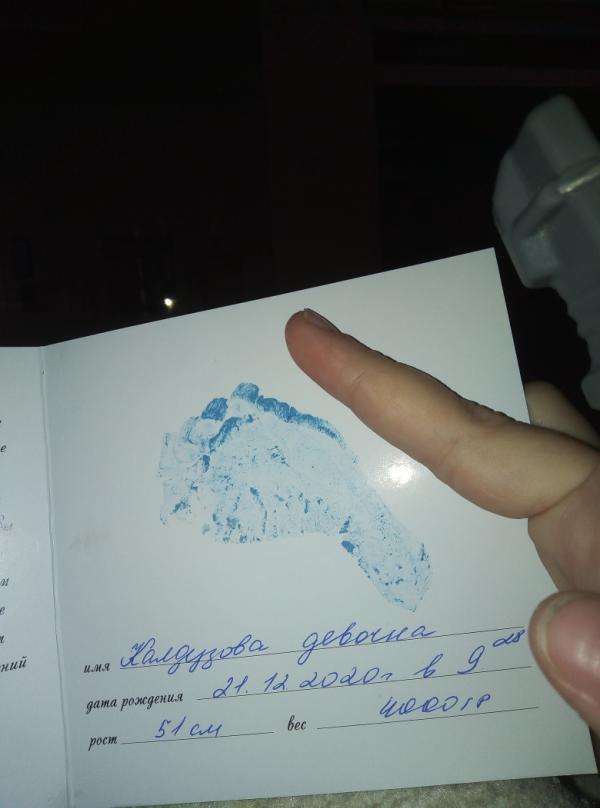 имя Калдузова девочка
дата рождения 21.12 2020г в 9 28
рост 51 см вес 4000 гр